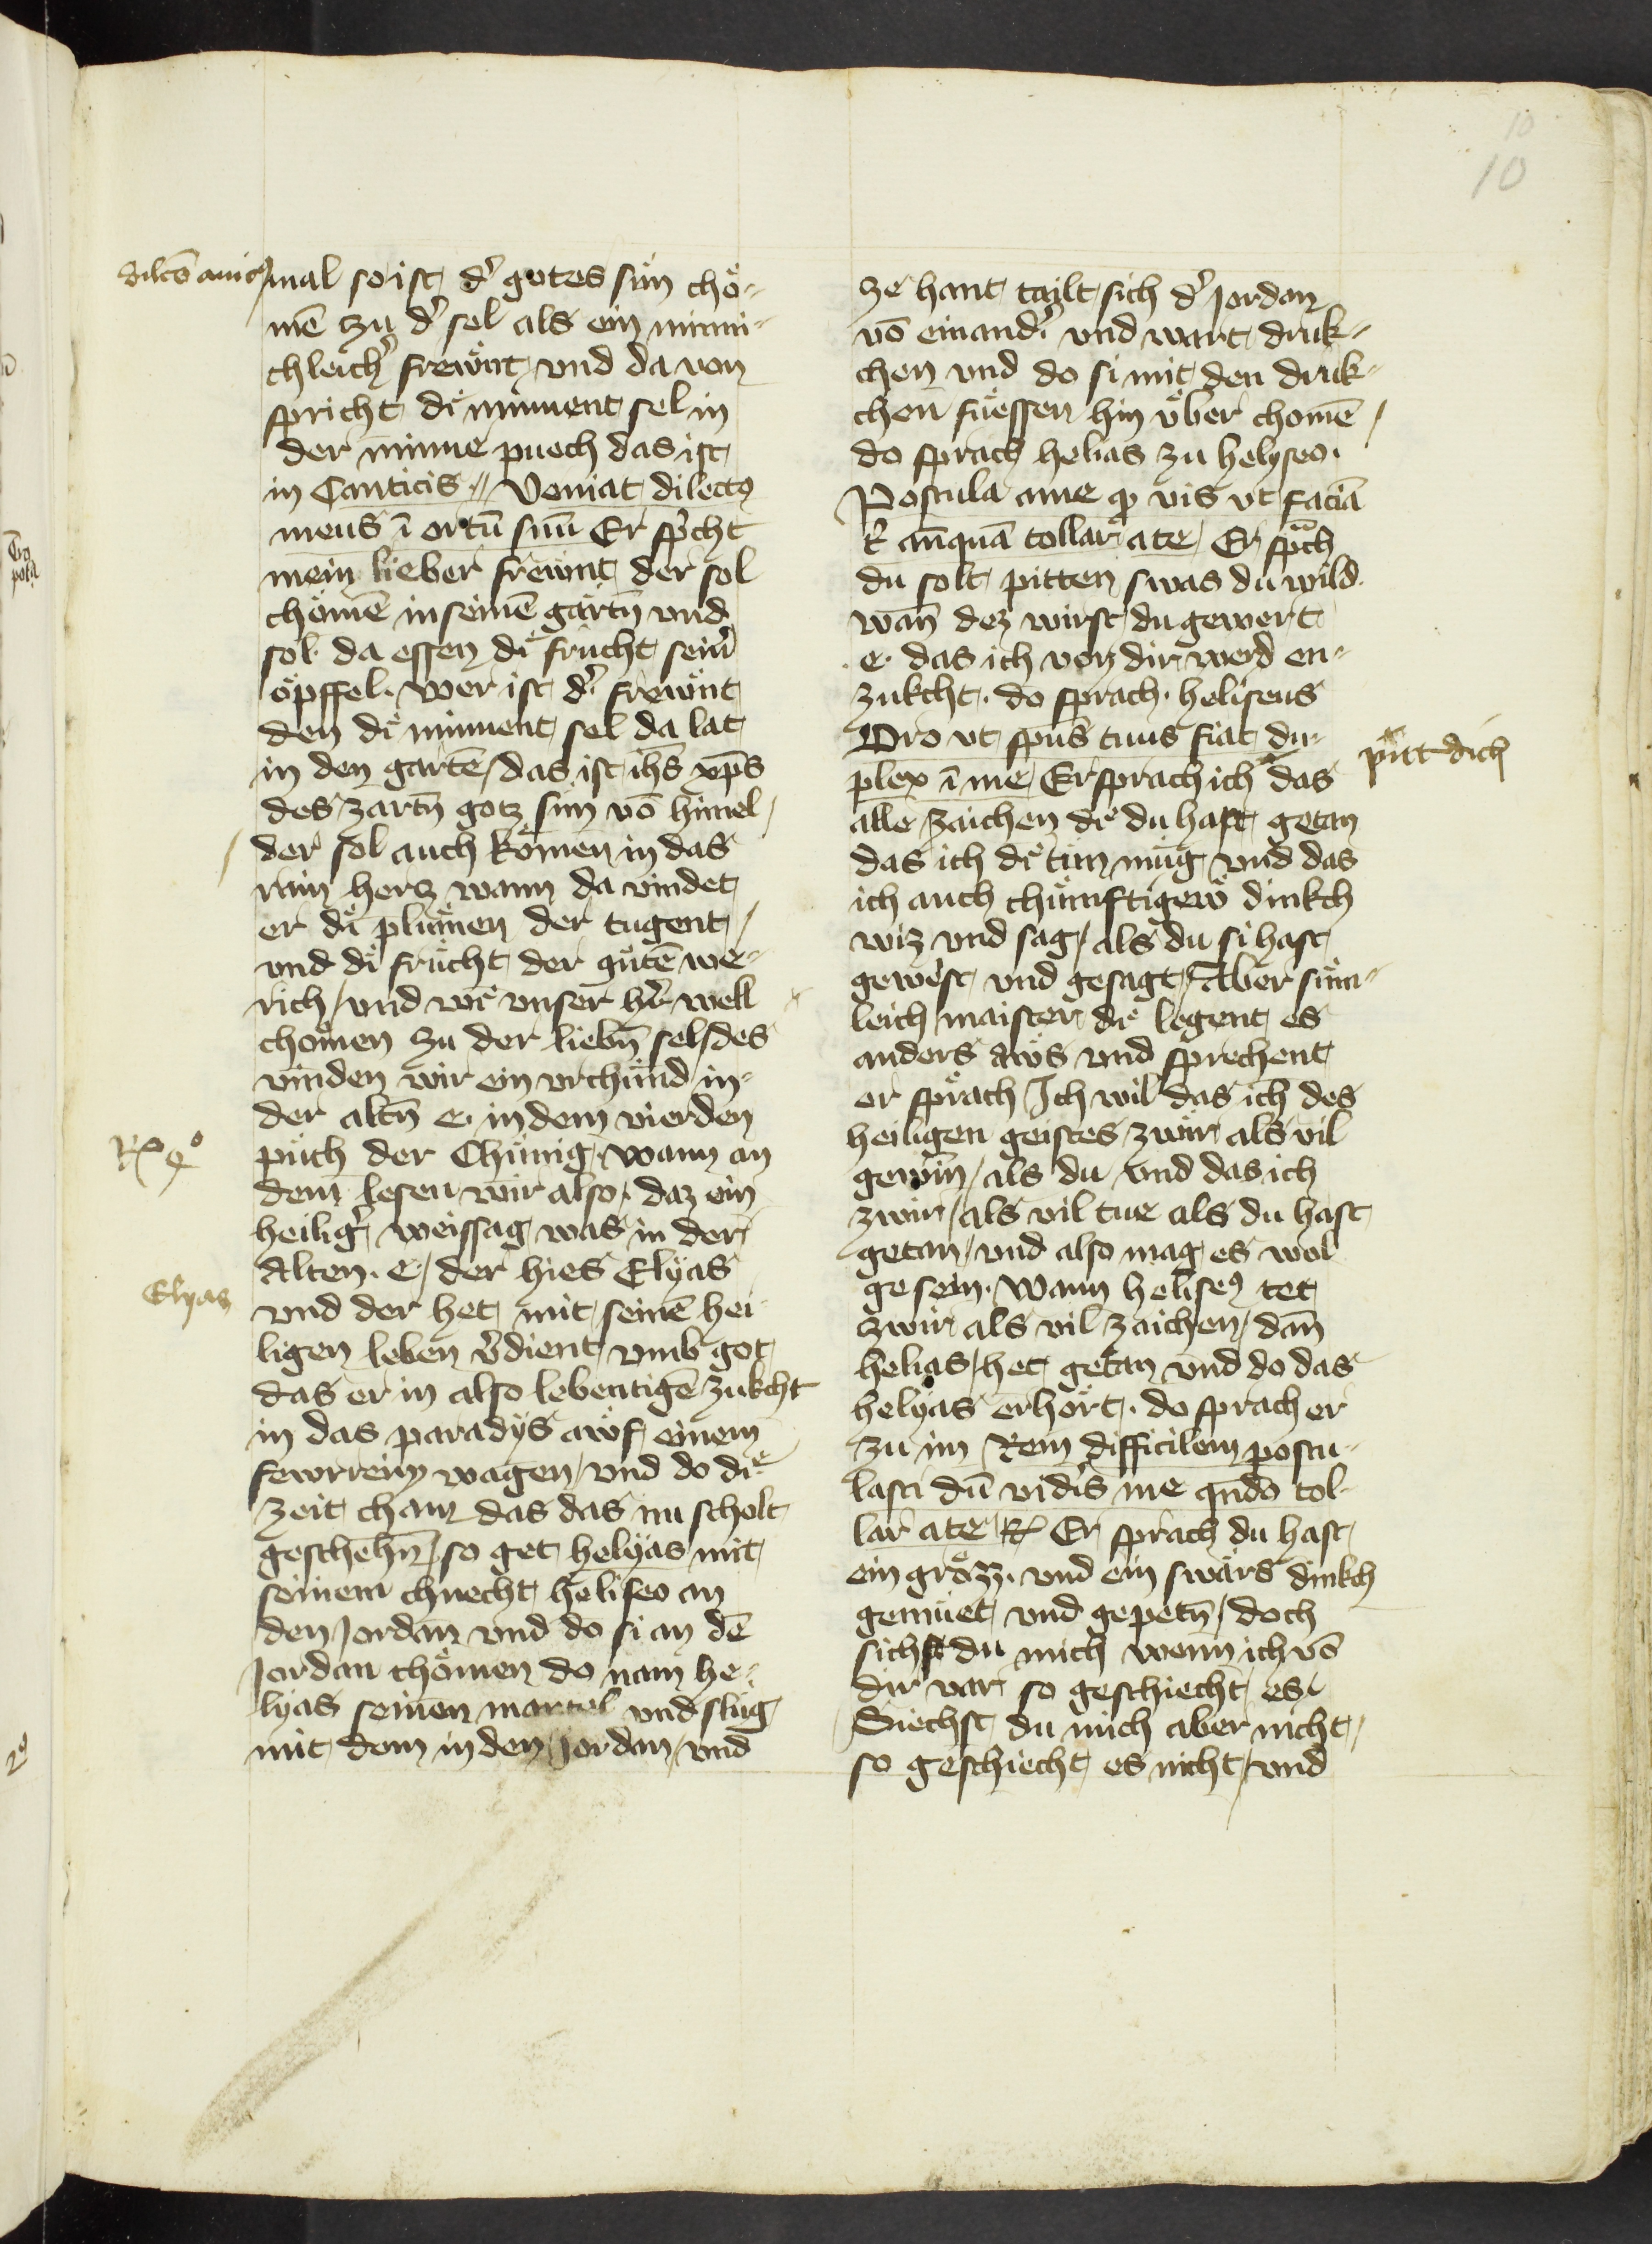 10
10
dilcō amico
mal so ist dˀ gotes sun chö-
mē zu dˀ sel als ein minni-
chleichˀ frewnt vnd da von
spricht di minnent sel in
der minne puech das ist
in Canticis // Veniat dilectꝯ
meus ī ortū suū Er spͥcht
mein lieber frewnt der sol
chömē in seinē gartn̄ vnd
sol da essen di frucht seinˀ
öpffel. wer ist dˀ frewnt
den di minnent sel da lat
in den gartē / das ist ihs xps
des zartn̄ gotz sun vō himel /
der sol auch kömen in das
rain hercz wann da vindet
er di plümen der tugent /
vnd di frücht der gütē we-
rich / vnd wie vnser hˀr well
chomen zu der liebn̄ sel / des
vinden wir ein vrchünd in-
der altn̄ e. in dem vierden
Rꝫ 4º
püch der Chünig / wann an
dem lesen wir also / daz ein
heiligˀ weissag was in der
Alten. e / der hies Elyas
Elyas
vnd der het mit seinē hei
ligen leben vˀdient vmb got
das er in also lebentigē zukcht
in das paradys awf einem
fewrreim wagen / vnd do die
zeit cham das das nu scholt
geschehn̄ / so get helyas mit
seinem chnecht heliseo an
den Jordan vnd do si an dē
Jordan chömen do nam he-
lyas seinen mantel vnd slug
mit dem in den Jordan / vnd
ze hant tailt sich dˀ Jordan
vō einandˀ vnd wart druk-
chen vnd do si mit den druk-
chen füessen hin vber chomē /
do sprach helias zu helyseo.
Postula ame qͩ vis vt faciā
tͥ anͤquā tollar ate / Er spͣch
du solt pitten swas du wild
wan̄ dez wirst du gewert
.e. das ich von dir werd en-
zukcht. do sprach. heliseus
Oro vt spūs tuus fiat du-
plex ī me / Er sprach ich das
pitt dich
alle zaichen di du hast getan
das ich di tun müg vnd das
ich auch chümftigew dinkch
wiz vnd sag / als du si hast
gewest vnd gesagt / Aber süm-
leich maister die legent es
anders aws vnd sprechent
er sprach Ich wil das ich des
heiligen geistes zwir als vil
gewin / als du vnd das ich
zwir / als vil tue als du hast
getan / vnd also mag es wol
gesein. Wann heliseꝯ tet
zwir als vil zaichen / dan̄
helias / het getan vnd do das
helyas erhört. do sprach er
zu im Rem difficilem postu-
lasti dū vidˀis me qn̄do tol-
lar ate Rꝫ Er sprach du hast
ein grözz. vnd ein swärs dinkch
gemüet vnd gepetn̄ / doch
sichst du mich wenn ich vō
dir var so geschiecht es
Siechst du mich aber nicht /
so geschiecht es nicht / vnd